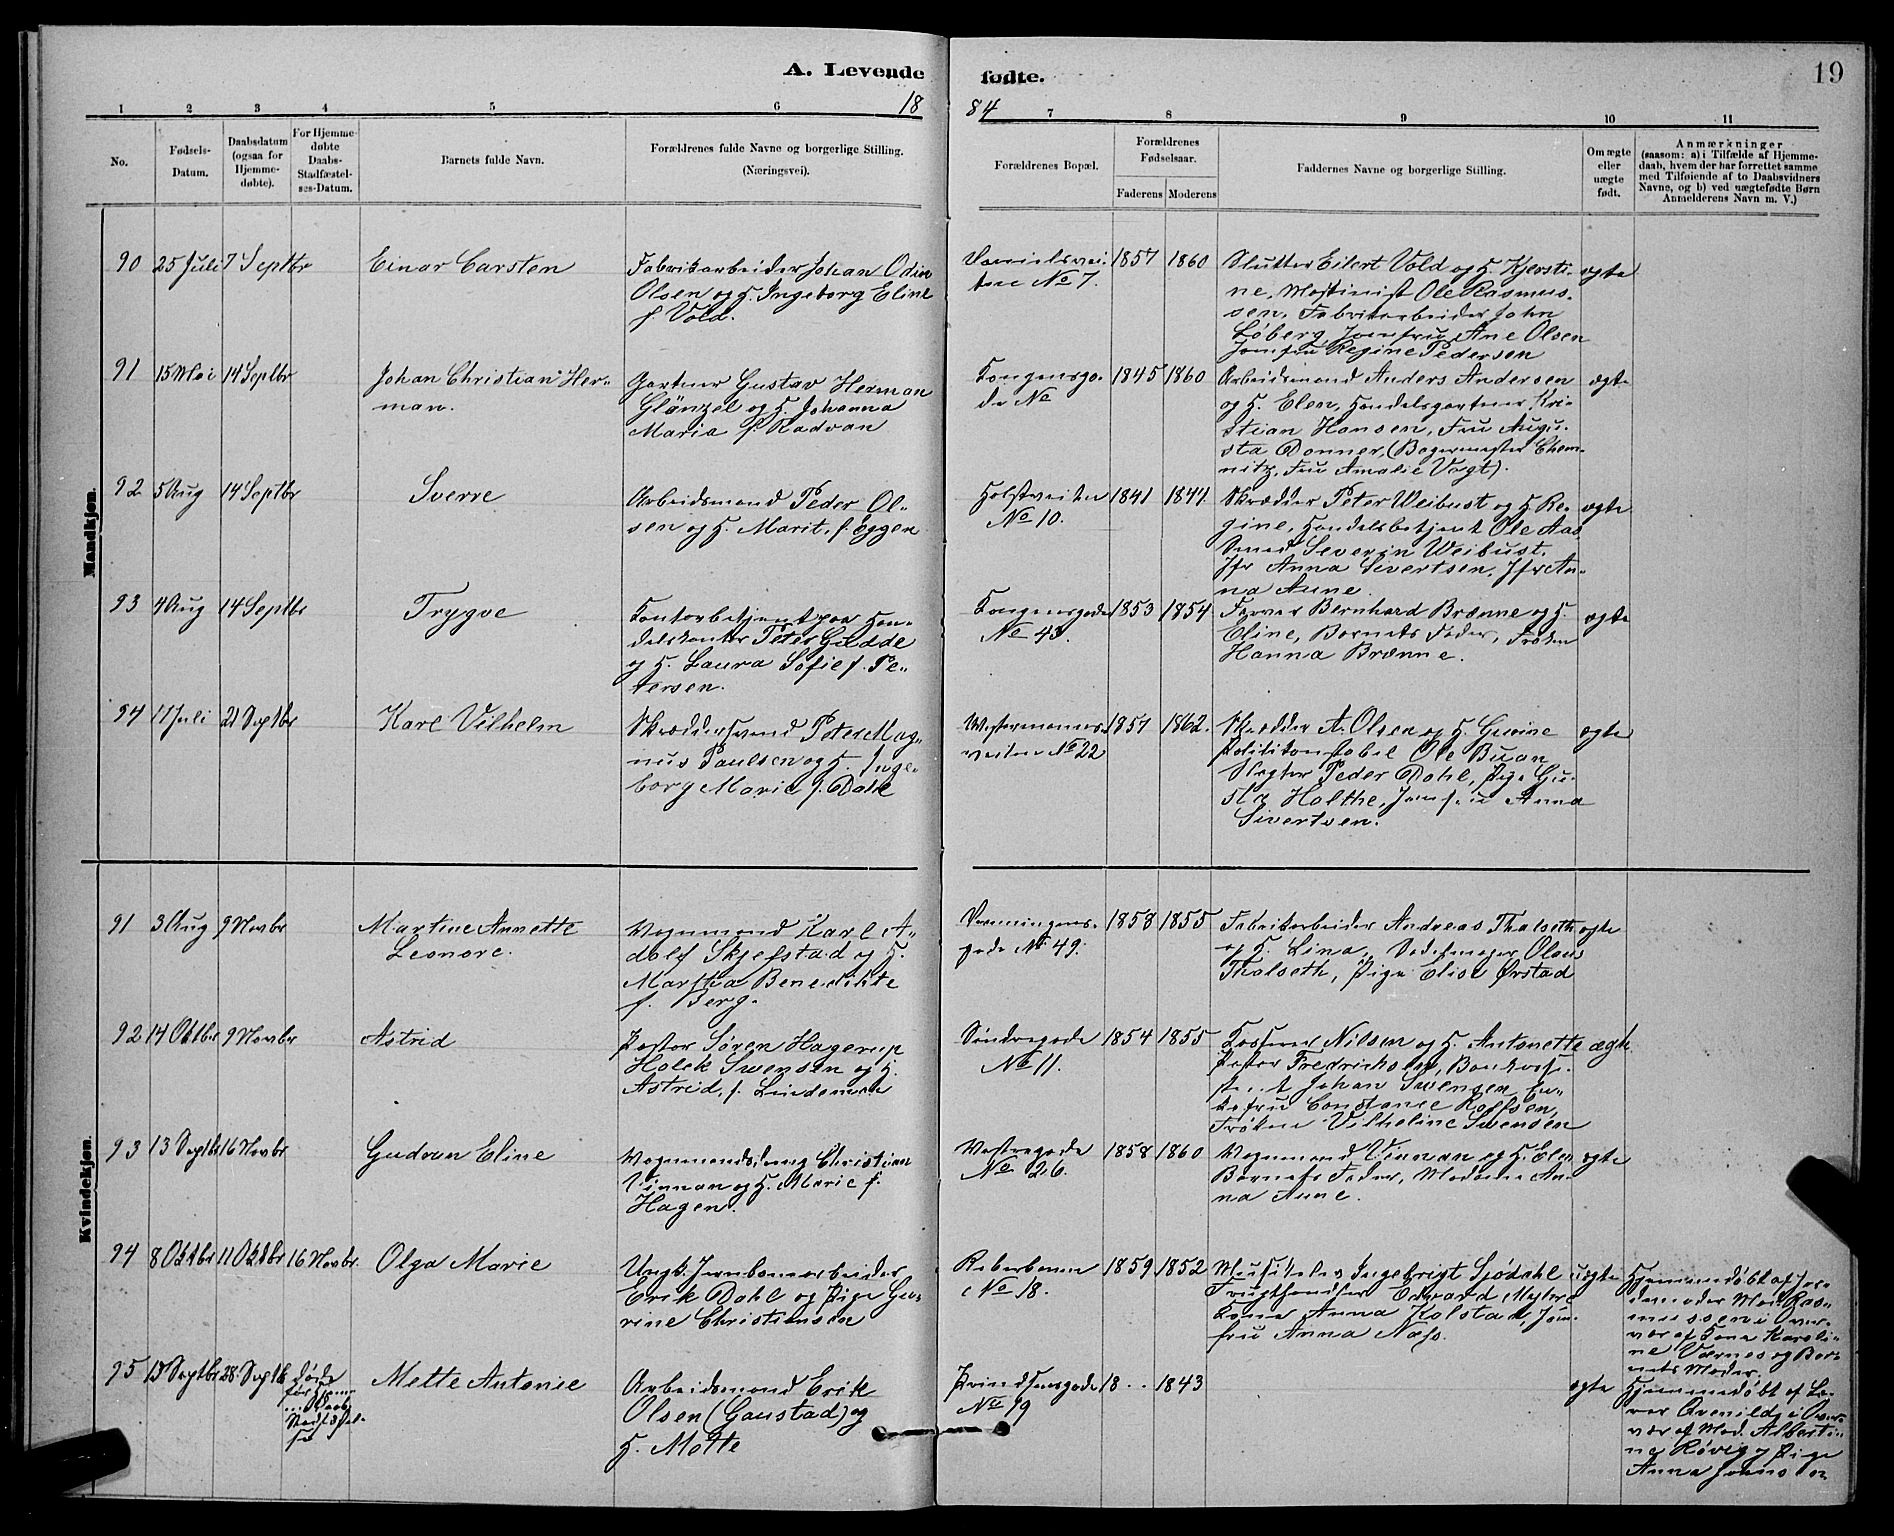 A. Levende fødte.
19
1884
1 2 3 4 5 6 7 8 9 10 11
No.
Fødsels-Datum.
Daabsdatum (ogsaa for Hjemme-døbte).
For Hjemme-døbte Daabs-Stadfæstel-ses-Datum.
Barnets fulde Navn.
Forældrenes fulde Navne og borgerlige Stilling. (Næringsvei).
Forældrenes Bopæl.
Forældrenes Fødselsaar.
Faderens Moderens
Faddernes Navne og borgerlige Stilling.
Om ægte eller uægte født.
Anmærkninger
(saasom: a) i Tilfælde af Hjemme-
daab, hvem der har forrettet samme
med Tilføiende af to Daabsvidners
Navne, og b) ved uægtefødte Børn
Anmelderens Navn m. V.)
Mandkjøn.
90 25 Juli 7 Septbr Einar Carsten
Fabrikarbeider Johan Odin
Olsen og H. Ingeborg Eline
f. Vold.
No 7.
1857 1860
Slutter Eilert Vold og H. Kjersti-
ne, Maskinist Ole Rasmus-
sen, Fabrikarbeider John
Løberg, Jomfru Ane Olsen
Jomfru Regine Pedersen
ægte
91 15 Mai 14 Septbr Johan Christian Her-
man.
Gartner Gustav Herman
Glänzel og H. Johanna
Maria f. Radvan
Kongensga-
de No
1845 1860
Arbeidsmand Anders Andersen
og H. Elen, Handelsgartner Kri-
stian Hansen, Fru Augu-
sta Donner, (Bagermester Chem-
nitz, Fru Amalie Vogt).
ægte
92 5 Aug 14 Septbr Sverre
Arbeidsmand Peder Ol-
sen og H. Marit, f. Eggen
Holstveiten
No 10.
1841 1844
Skrædder Peter Weibust og H Re-
gine, Handelsbetjent Ole Aas
Smed Severin Weibust.
Jfr Anna Sivertsen, Jfr An-
na Aune.
ægte
93 4 Aug 14 Septbr Trygve
Kontorbetjent paa Han-
delskontor Peter Gudde
og H. Laura Sofie f. Pe-
tersen.
Kongensgade
No 43.
1853 1854
Farver Bernhard Brænne og H.
Eline, Barnets Fader, Frøken
Hanna Brænne.
ægte
94 11 Juli 21 Septbr Karl Vilhelm
Skræddersvend Peter Mag-
nus Paulsen og H. Inge-
borg Marie f. Dahl
Westermanns-
veiten No 22
1857 1862.
Skrædder A. Olsen og H. Gurine
Politikonstabel Ole Buan
Slagter Peder Dahl, Pige Gu-
sta Holthe, Jomfru Anna
Sivertsen.
ægte
Kvindekjøn.
91 3 Aug 9 Novbr Martine Annette
Leonore.
Vognmand Karl A-
dolf Skjefstad og H.
Martha Benedikte
f. Berg.
gade No 49.
1858 1855
Fabrikarbeider Andreas Thalseth
og H. Lina, Olaus
Thalseth, Pige Elise Ørstad
ægte
92 14 Oktbr 9 Novbr Astrid
Pastor Søren Hagerup
Holck Swensen og H.
Astrid, f. Lindeman
Søndregade
No 11.
1854 1855
Kasserer Nilsen og H. Antonette
Pastor Fredrichsen,
Johan Swensen, En-
kefru Constance Rolfsen,
Frøken Vilhelmine Swensen
ægte
93 13 Septbr 16 Novbr Gudrun Eline
Vognmandsdreng Christian
Vinnan og H. Marie f.
Hagen.
Vestregade
No 26.
1858 1860
Vognmand Vinnan og H. Elen
Barnets Fader, Madame An-
na Aune.
ægte
94 8 Oktbr 11 Oktbr 16 Novbr Olga Marie
Ungk. Jernbanearbeider
Erik Dahl og Pige Gu-
rine Christiansen
Reberbanen
No 18.
1859 1852
Musikelev Ingebrigt Sjødahl
Frugthandler Edvard Myhre
Kone Anna Kolstad, Jom-
fru Anna Næss.
uægte
Hjemmedøbt af Jor-
demoder Mad. Ras-
mussen i Over-
vær af Kone Karoli-
ne Værnes og Bar-
nets Moder.
95 13 Septbr 28 Septbr døde
før
Daabs
Stadfæstel-
se
Mette Antonie
Arbeidsmand Erik
Olsen (Gaustad) og
H. Mette
Prindsensgade
No 19
18.. 1843
ægte
Hjemmedøbt af
i Over-
vær af Mad. Alberti-
ne Røvig og Pige
Anna Johnsen